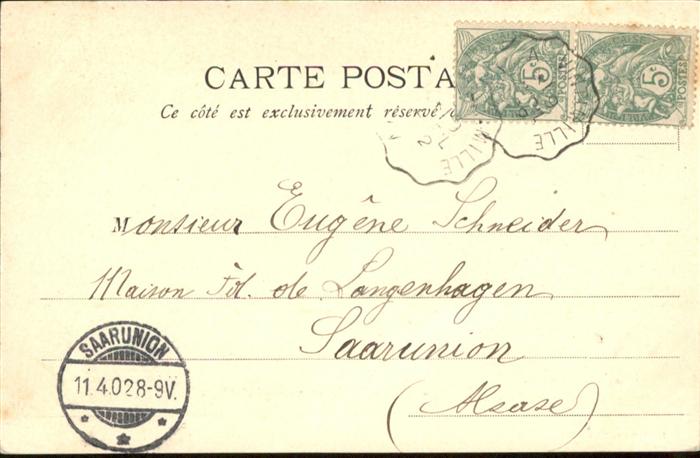 CARTE POSTA
Ce côté est exclusivement réservé
5c
POSTES
5c
POSTES
Monsieur Eugène Schneider
Maison Fd. de Langenhagen
Saarunion
(Alsase)
SAARUNION
11.4.02 8-9V.